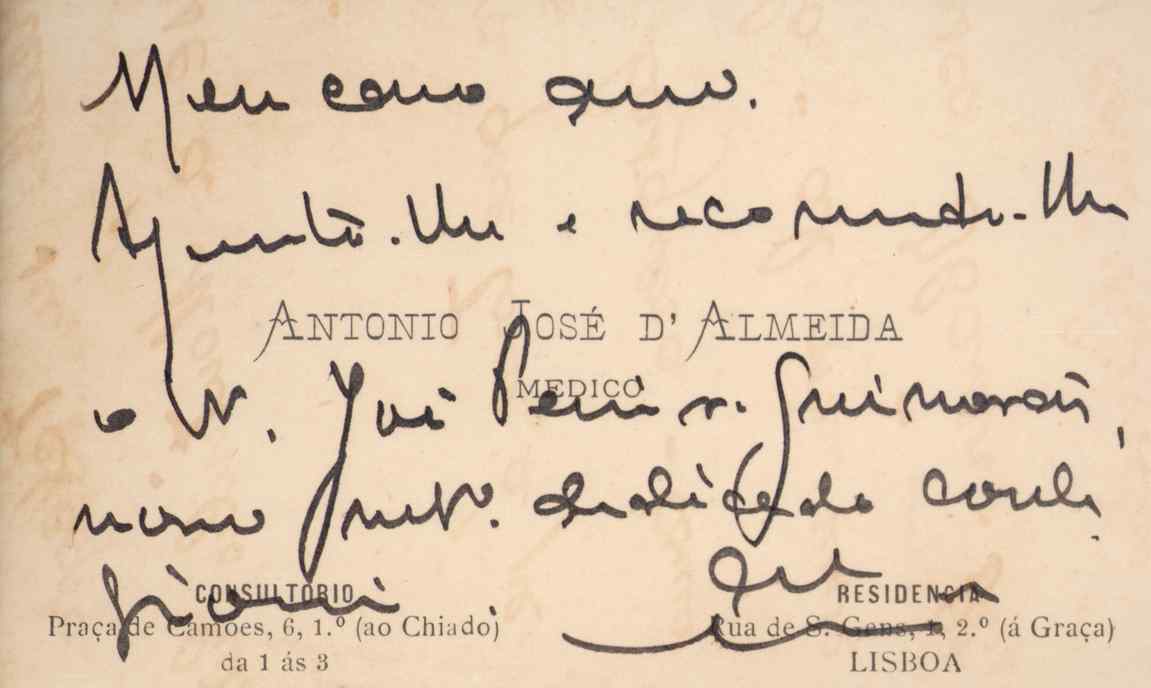 Meu caro amo.
Apresento-lhe e recomendo-lhe
ANTONIO JOSÉ D'ALMEIDA
MEDICO
o Sr. José Pereira Guimarães,
nosso dedicado correli
gionario
CONSULTÓRIO
Praça de Camões, 6, 1.º (ao Chiado)
da 1 ás 3
RESIDENCIA
Rua de S. Gens, 1, 2.º (á Graça)
LISBOA